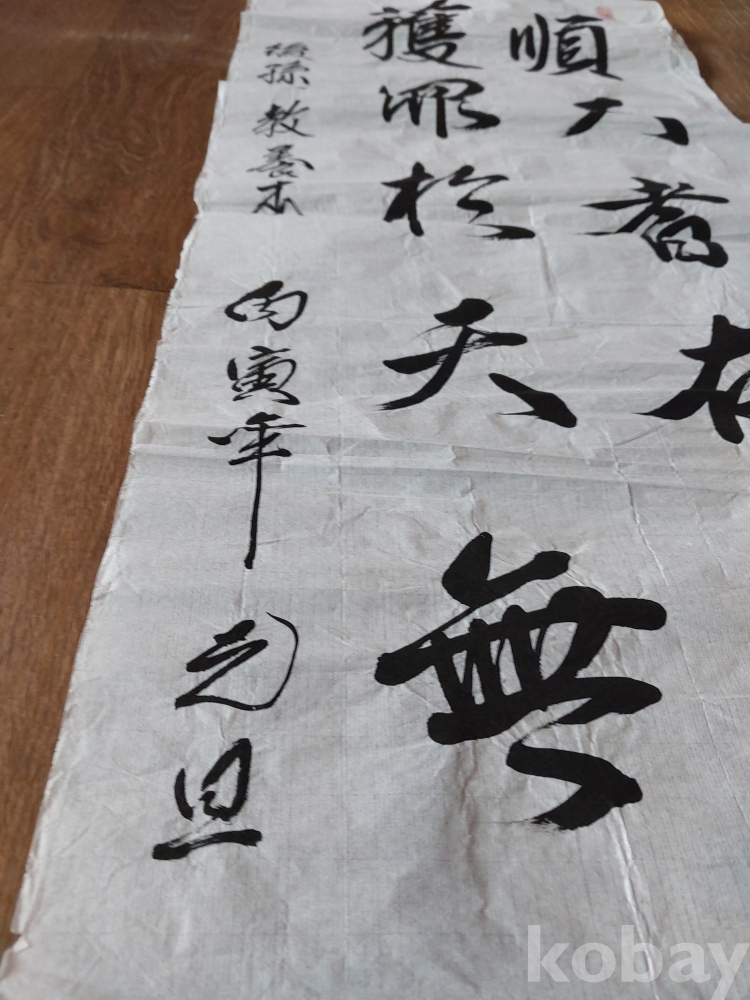 順天者
獲罪於天無
後孫 教養本 丙寅年 元旦
kobay